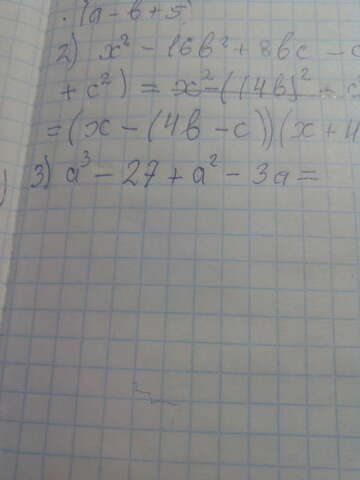 (a - b + 5)
2) x² - 16b² + 8bc - c
+ c²) = x² - ((4b)² - c
= (x - (4b - c))(x + 4
3) a³ - 27 + a² - 3a =